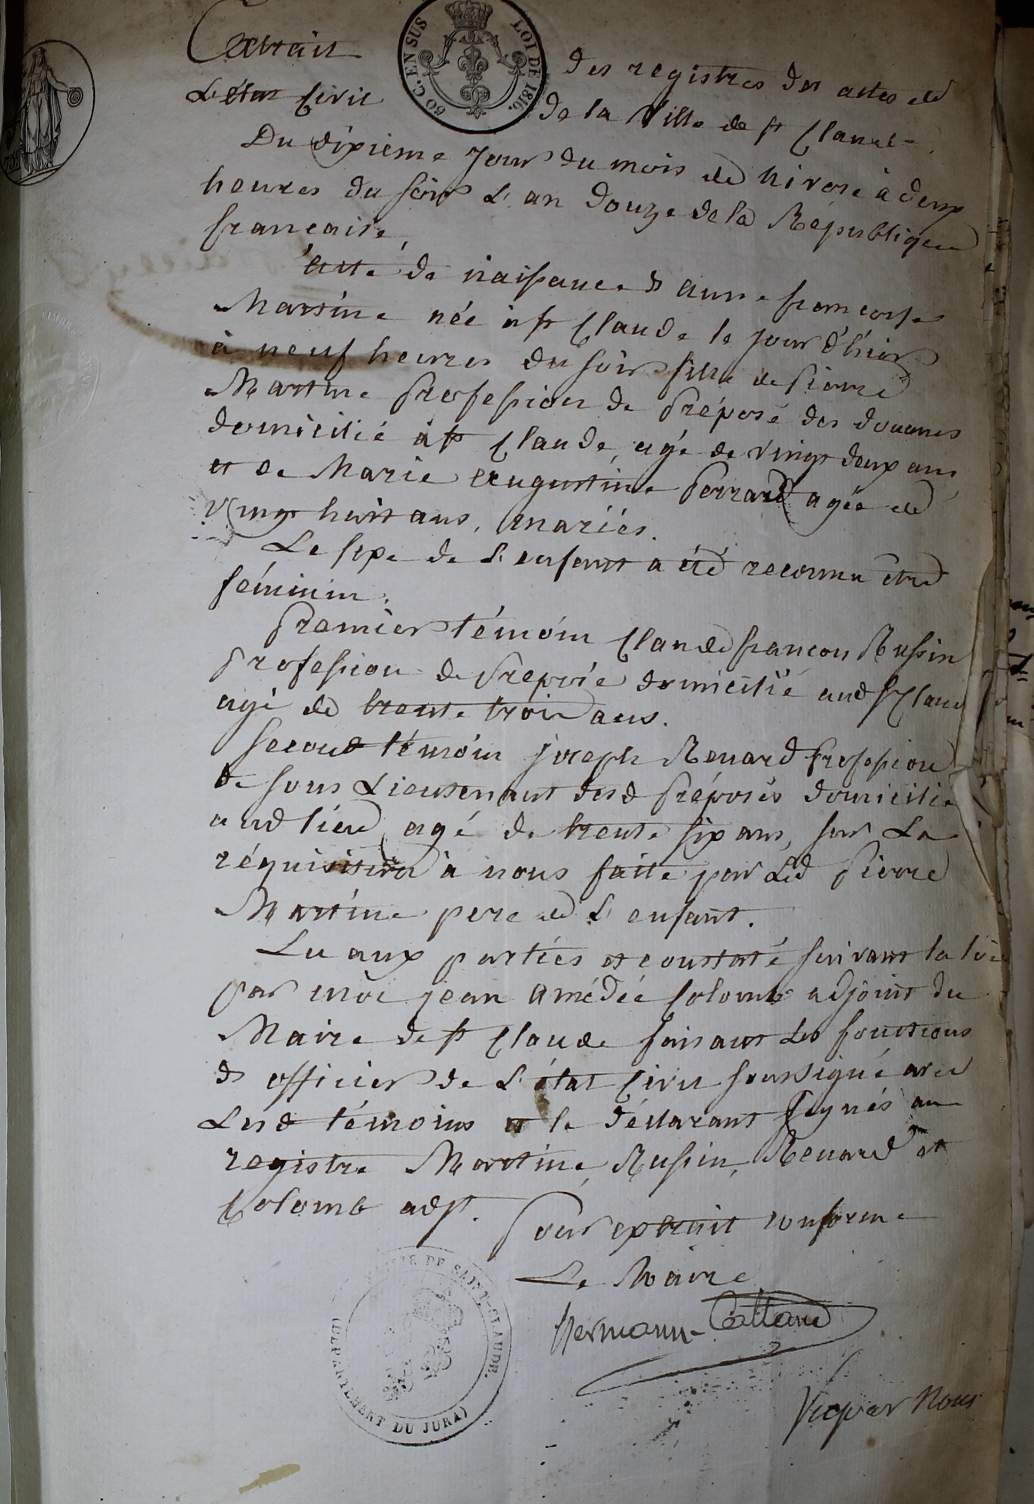 Extrait des registres des actes de
L'état Civil de la Ville de St Claude.
60 C. EN SUS LOI DE 1816.
Du dixieme jour du mois de nivose à deux
heures du soir L'an douze de la République
française,
acte de naissance d'anne francoise
Martine née à St Claude le jour d'hier
à neuf heures du soir fille de Pierre
Martine Profession de Préposé des douanes
domicilié à St Claude, agé de vingt deux ans
et de Marie augustine Perrard agée de
Vingt huit ans, mariés.
Le sexe de L'enfant a été reconnu être
féminin.
Premier témoin Claude françois Russin
Profession de Preposé domicilié aud St Claude
agé de trente trois ans.
Second témoin joseph Renard Profession
de sous Lieutenant desd Préposés domicilié
aud lieu, agé de trente six ans, sur La
réquisition à nous faitte par Led Pierre
Martine pere de L'enfant.
Lu aux parties et constaté suivant la loi
par moi jean amédée Colomb adjoint du
Maire de St Claude faisant les fonctions
d'officier de L'état Civil soussigné avec
Lesd témoins et le déclarant Signés au
registre Martine, Russin, Renard et
Colomb adjt.
Pour extrait conforme
Le Maire
MAIRIE DE SAINT-CLAUDE.
(DÉPARTEMENT DU JURA)
Vu par Nous